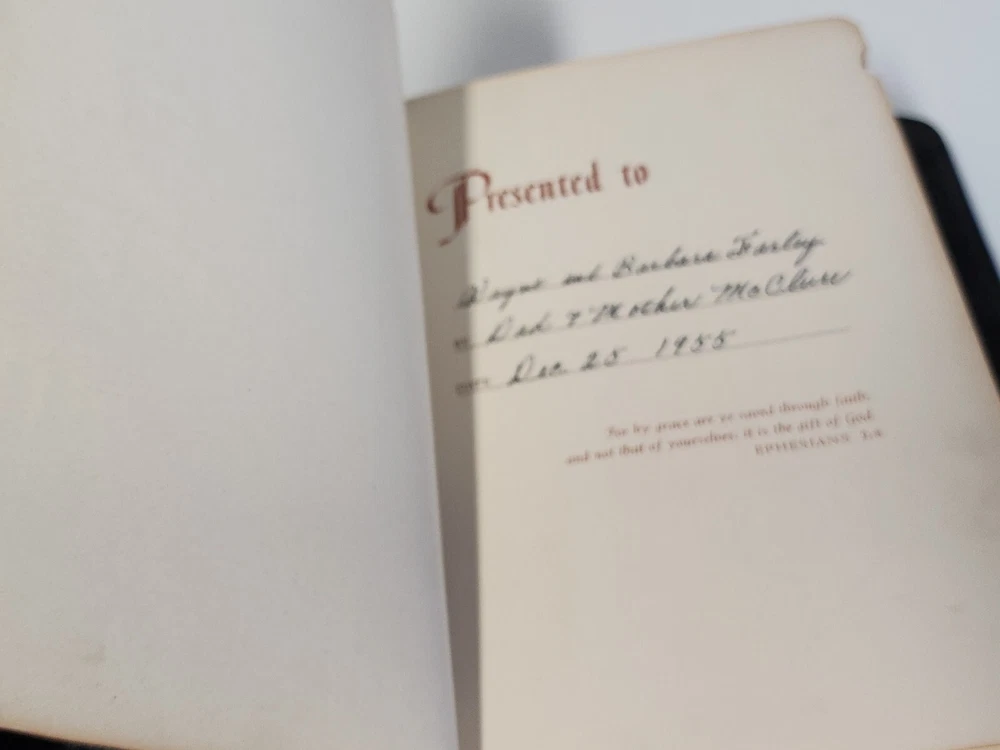 Presented to
Wayne and Barbara Farley
BY Dad & Mother McClure
DATE Dec 25 1955
For by grace are ye saved through faith;
and not that of yourselves: it is the gift of God:
EPHESIANS 2:8